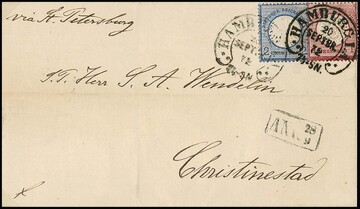 via St. Petersburg
HAMBURG I.
20
SEPTBR.
72
HAMBURG I.
20
SEPTBR.
72
T. Herr S. A. Wendelin
ANK. 28
9
Christinestad